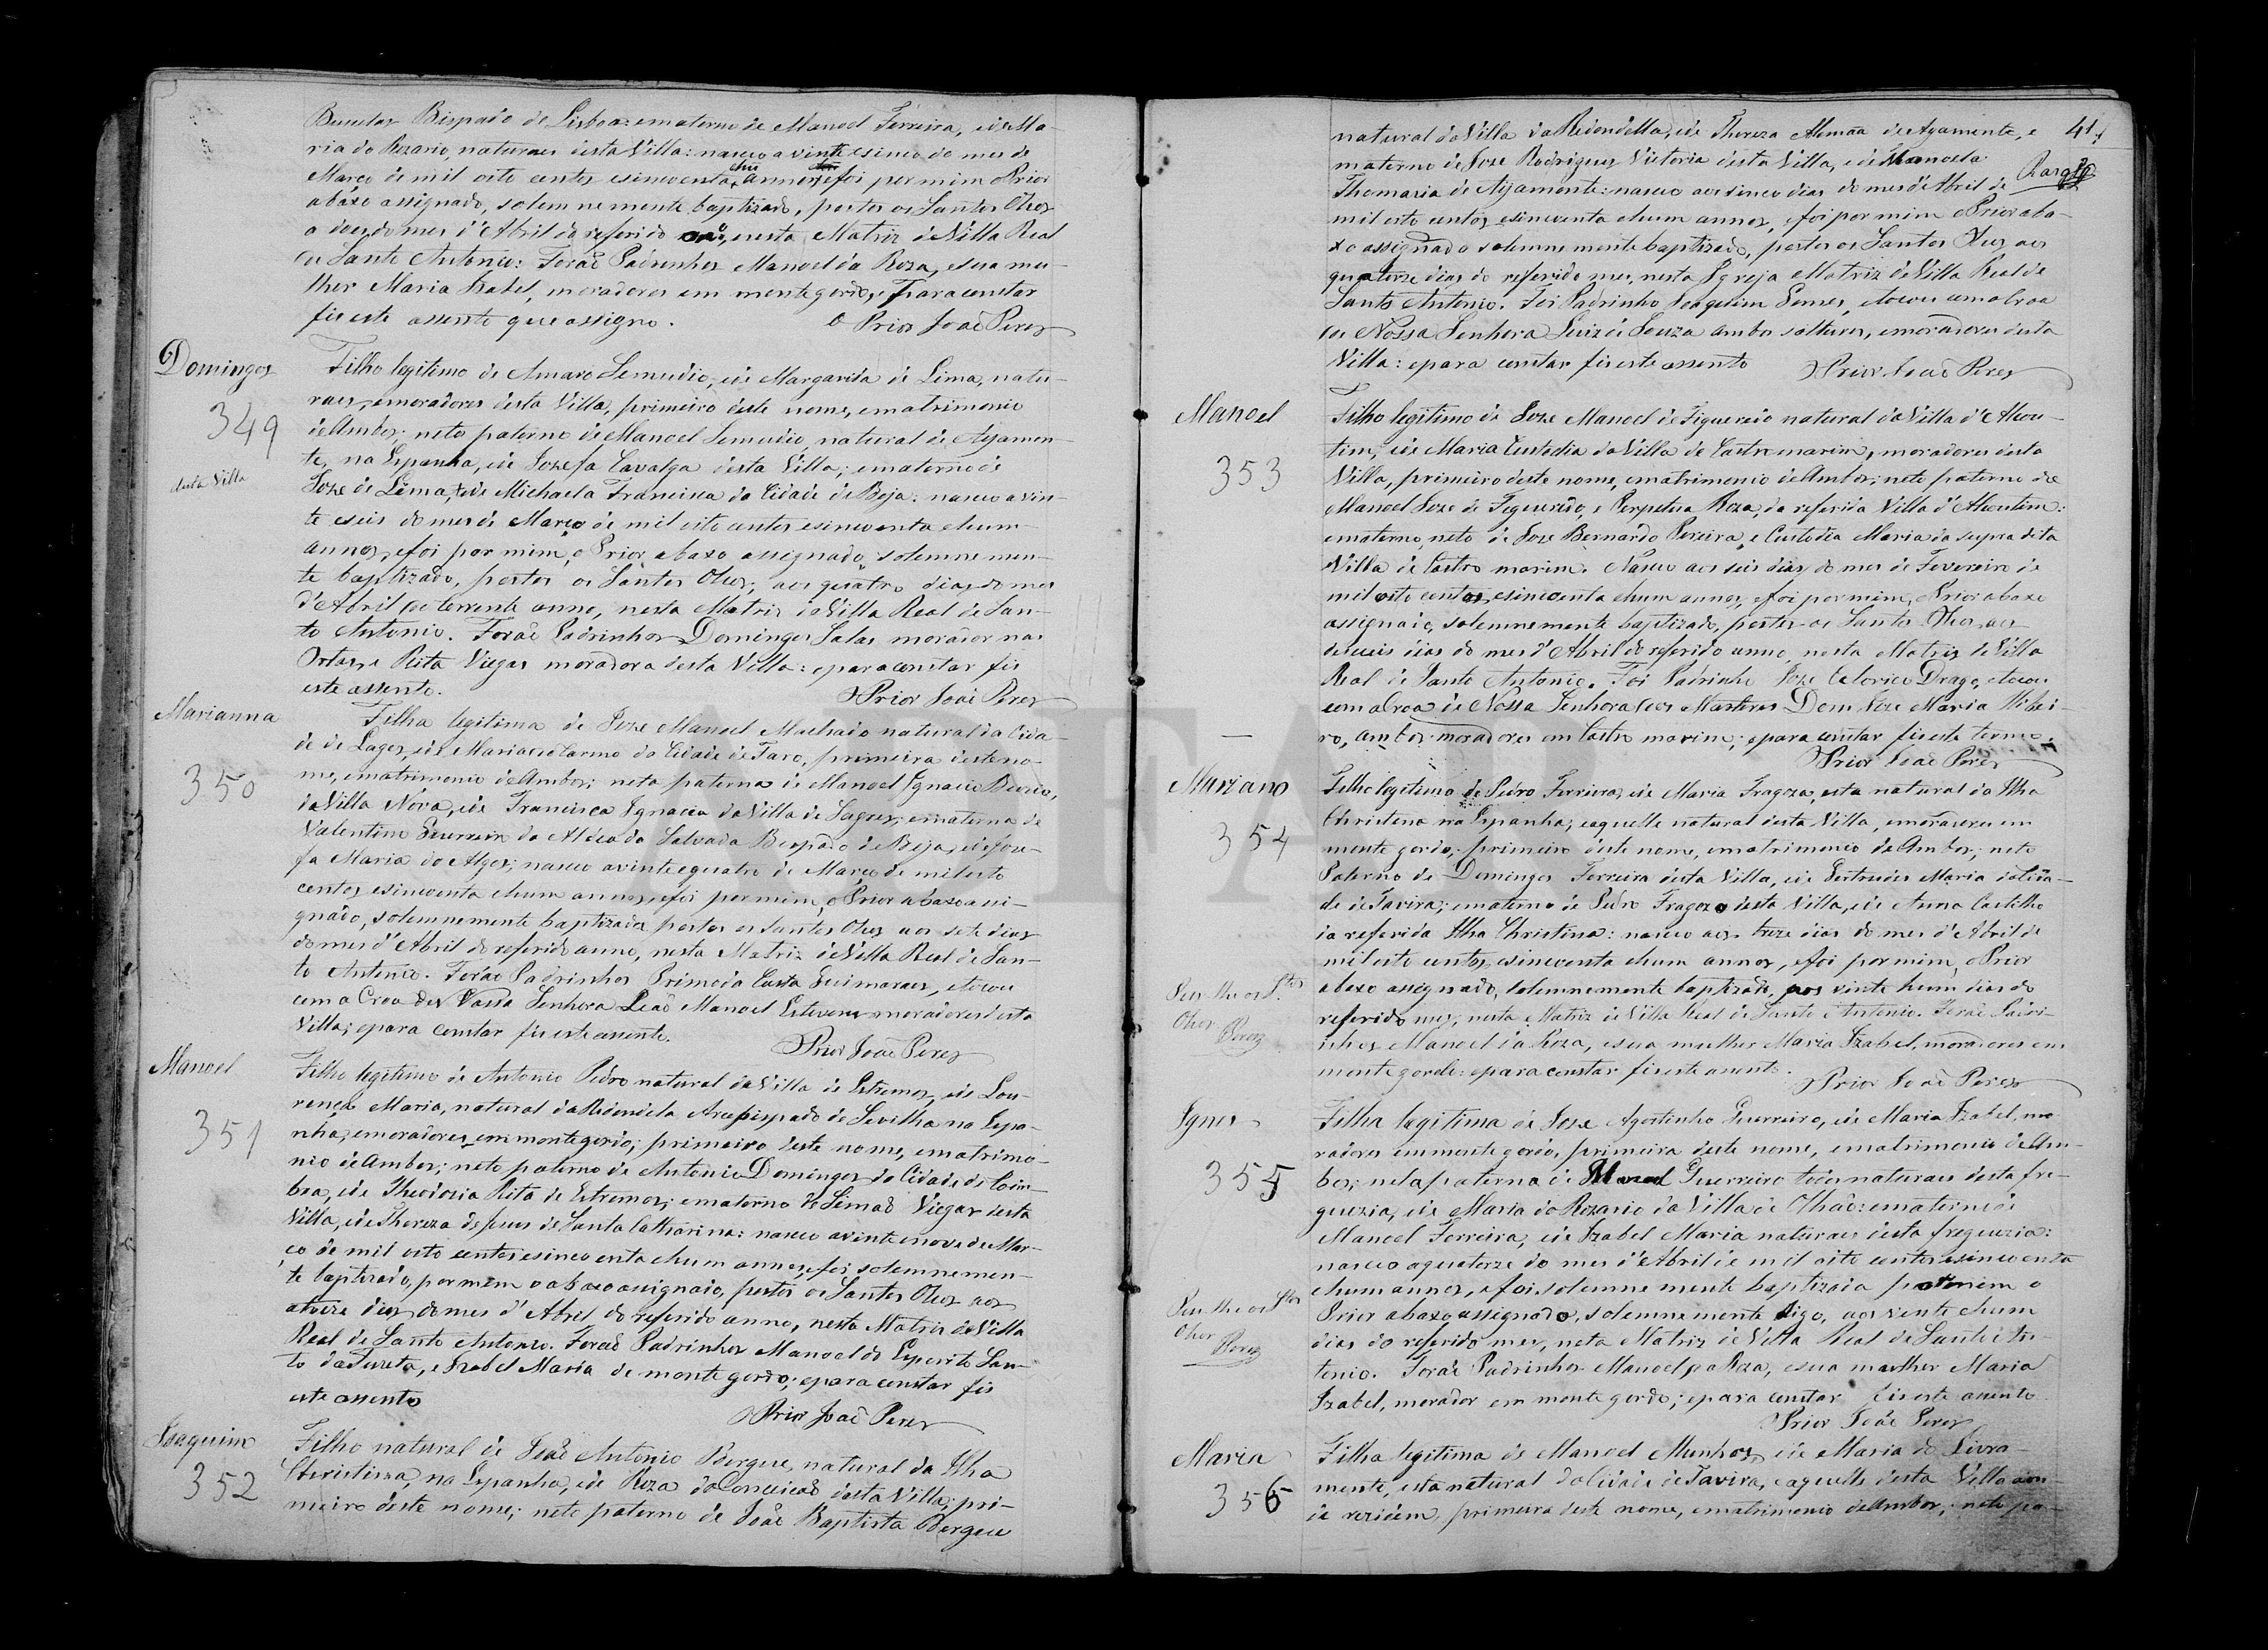 Bispado de Lisboa: ematerno de Manoel Ferreira, ede Ma-
ria do Rozario, naturaes desta Villa: nasceo a vinte esinco do mes de
Março de mil oito centos esincoenta ehũ annos, efoi por mim o Prior
abaxo assignado, solemnemente baptizado, postos os Santos Olios
a dois do mes d'Abril do referido anno, nesta Matriz de Villa Real
de Santo Antonio: Foraõ Padrinhos Manoel da Roza, esua mu-
lher Maria Izabel, moradores em montegordo, epara constar
fis este assento que assigno. O Prior Joaõ Peres
Domingos
349
desta Villa
Filho legitimo de Amaro Semudio, ede Margarida de Lima, natu-
raes, emoradores desta Villa, primeiro deste nome, ematrimonio
de Ambos; neto paterno de Manoel Semudio, natural de Ayamon-
te, na Espanha, ede Jozefa Cavalga desta Villa; ematerno de
Joze de Lima, ede Michaela Francisca da Cidade de Beja: nasceo a vin-
te eseis do mes de Março de mil oito centos esincoenta ehum
annos, efoi por mim, o Prior abaxo assignado, solemnemen-
te baptizado, postos os Santos Olios, aos quatro dias do mes
d'Abril do corrente anno, nesta Matriz de Villa Real de San-
to Antonio. Foraõ Padrinhos Domingos Salas morador nas
Ortas, e Rita Viegas moradora desta Villa: epara constar fis
este assento. O Prior Joaõ Peres
Marianna
350
Filha legitima de Joze Manoel Machado natural da Cida-
de de Lagos, ede Maria do Carmo da Cidade de Faro, primeira deste no-
me, ematrimonio de Ambos; neta paterna de Manoel Ignacio
da Villa Nova, ede Francisca Ignacia da Villa de Sagres; ematerna de
Valentim Guerreiro da Aldea da Salvada Bispado de Beja, ede Joze-
fa Maria do Algoz; nasceo a vinte equatro de Março de mil oito
centos esincoenta ehum annos, efoi por mim, o Prior abaxo assi-
gnado, solemnemente baptizada postos os Santos Olios aos sete dias
do mes d'Abril do referido anno, nesta Matriz de Villa Real de San-
to Antonio. Foraõ Padrinhos Primo da Costa Guimaraes, etocou
com a Croa de Nossa Senhora Leaõ Manoel Esteves moradores desta
Villa; epara constar fis este assento.
O Prior Joaõ Peres
Manoel
351
Filho legitimo de Antonio Pedro natural da Villa de Estremoz, ede Lou-
rença Maria, natural da Redondela Arcebispado de Sevilha na Espa-
nha, emoradores em montegordo; primeiro deste nome, ematrimo-
nio de Ambos; neto paterno de Antonio Domingos da Cidade de Coim-
bra, ede Theodozia Rita de Estremoz; ematerno de Simaõ Viegas desta
Villa, ede Thereza de Jesus de Santa Catharina: nasceo a vinte enove de Mar-
ço de mil oito centos esincoenta ehum annos, efoi solemnemen-
te baptizado, por mim o abaxo assignado, postos os Santos Olios aos
dias do mes d'Abril do referido anno, nesta Matriz de Villa
Real de Santo Antonio. Foraõ Padrinhos Manoel do Esperito San-
to da Fuzeta, e Izabel Maria de monte gordo; epara constar fis
este assento
O Prior Joaõ Peres
Joaquim
352
Filho natural de Joaõ Antonio Borges, natural da Ilha
Christina, na Espanha, ede Roza da Conceicaõ desta Villa; pri-
meiro deste nome; neto paterno de Joaõ Baptista Borges
41
natural da Villa da Redondella, ede Thereza Alemaa de Ayamonte, e
materno de Joze Rodrigues Victoria desta Villa, ede Manoela
Thomazia de Ayamonte: nasceo aos sinco dias do mes de Abril de
mil oito centos esincoenta ehum annos, efoi por mim o Prior aba-
xo assignado solemnemente baptizado, postos os Santos Olios aos
quatorze dias do referido mes, nesta Igreja Matriz de Villa Real de
Santo Antonio. Foi Padrinho Joaquim Gomes, etocou com a Croa
de Nossa Senhora Luiz de Souza ambos solteiros, emoradores desta
Villa: epara constar fis este assento O Prior Joaõ Peres
Manoel
353
Filho legitimo de Joze Manoel de Figueredo natural da Villa d'Alcou-
tim, ede Maria Custodia da Villa de Castromarim, moradores desta
Villa, primeiro deste nome, ematrimonio de Ambos; neto paterno de
Manoel Joze de Figueredo, e Perpetua Roza, da referida Villa d'Alcoutim:
ematerno neto de Joze Bernardo Pereira, e Custodia Maria da supra dita
Villa de Castro marim. Nasceo aos seis dias do mes de Fevereiro de
mil oito centos esincoenta ehum annos, efoi por mim, o Prior abaxo
assignado, solemnemente baptizado, postos os Santos Olios, aos
deseseis dias do mes d'Abril do referido anno, nesta Matriz de Villa
Real de Santo Antonio. Foi Padrinho Joze Celorico Drago, etocou
com a Croa de Nossa Senhora dos Martires Dom Joze Maria Ribei-
ro, ambos moradores em Castro marim; epara constar fis este termo.
O Prior Joaõ Peres
Mariano
354
Pus-lhe os Stos
Olios
Peres
Filho legitimo de Pedro Ferreira, ede Maria Fragoza, esta natural da Ilha
Christina na Espanha, eaquelle natural desta Villa, emoradores em
monte gordo; primeiro deste nome, ematrimonio de Ambos; neto
Paterno de Domingos Ferreira desta Villa, ede Gertrudes Maria da Cida-
de de Tavira; ematerno de Pedro Fragozo desta Villa, ede Anna Castelho
da referida Ilha Christina: nasceo aos treze dias do mes d'Abril de
mil oito centos esincoenta ehum annos, efoi por mim, o Prior
abaxo assignado, solemnemente baptizado, aos vinte hum dias do
referido mes, nesta Matriz de Villa Real de Santo Antonio. Foraõ Padri-
nhos Manoel da Roza, esua mulher Maria Izabel, moradores em
monte gordo: epara constar fis este assento. O Prior Joaõ Peres
Ignes
355
Pus-lhe os Stos
Olios
Peres
Filha legitima de Joze Agostinho Guerreiro, ede Maria Izabel, mo-
radores em monte gordo, primeira deste nome, ematrimonio de Am-
bos; neta paterna de Manoel Guerreiro todos naturaes desta fre-
guezia, ede Maria do Rozario da Villa de Olhaõ: ematerna de
Manoel Ferreira, ede Izabel Maria naturaes desta freguezia:
nasceo a quatorze do mes d'Abril de mil oito centos esincoenta
ehum annos, efoi solemnemente baptizada por mim o
Prior abaxo assignado, solemnemente digo, aos vinte ehum
dias do referido mes, nesta Matriz de Villa Real de Santo An-
tonio. Foraõ Padrinhos Manoel da Roza, esua mulher Maria
Izabel, morador em monte gordo; epara constar fis este assento
O Prior Joaõ Peres
Maria
356
Filha legitima de Manoel Munhos, ede Maria do Livra-
mento, esta natural da Cidade de Tavira, eaquelle desta Villa aon-
de rezidem, primeira deste nome, ematrimonio de Ambos; neta pa-